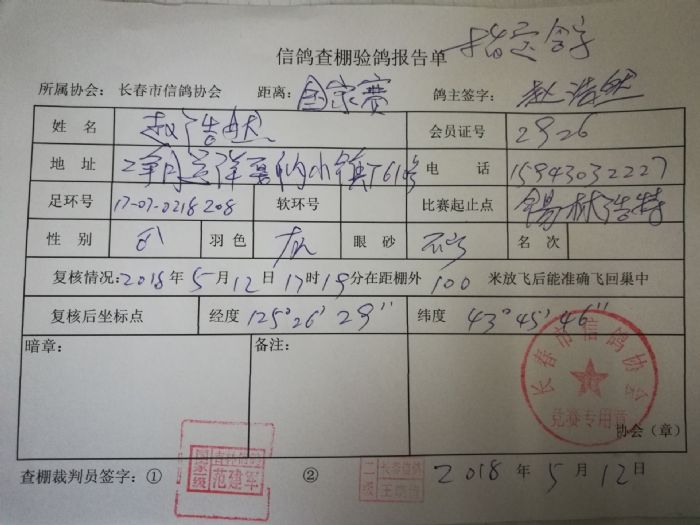 指定鸽
信鸽查棚验鸽报告单
所属协会： 长春市信鸽协会 距离： 国家赛 鸽主签字： 赵浩然
姓 名 赵浩然 会员证号 2926
地 址 电 话 15943032227
足环号 17-07-0218208 软环号 比赛起止点 锡林浩特
性 别 羽色 灰 眼 砂 名 次
复核情况：2018年5月12日17时19分在距棚外100米放飞后能准确飞回巢中
复核后坐标点 经度 125°26′29″ 纬度 43°45′46″
暗章： 备注：
长春市信鸽协会
竞赛专用章
协会（章）
查棚裁判员签字：① 国家一级 范建军 ② 二级 长春信鸽 2018年5月12日